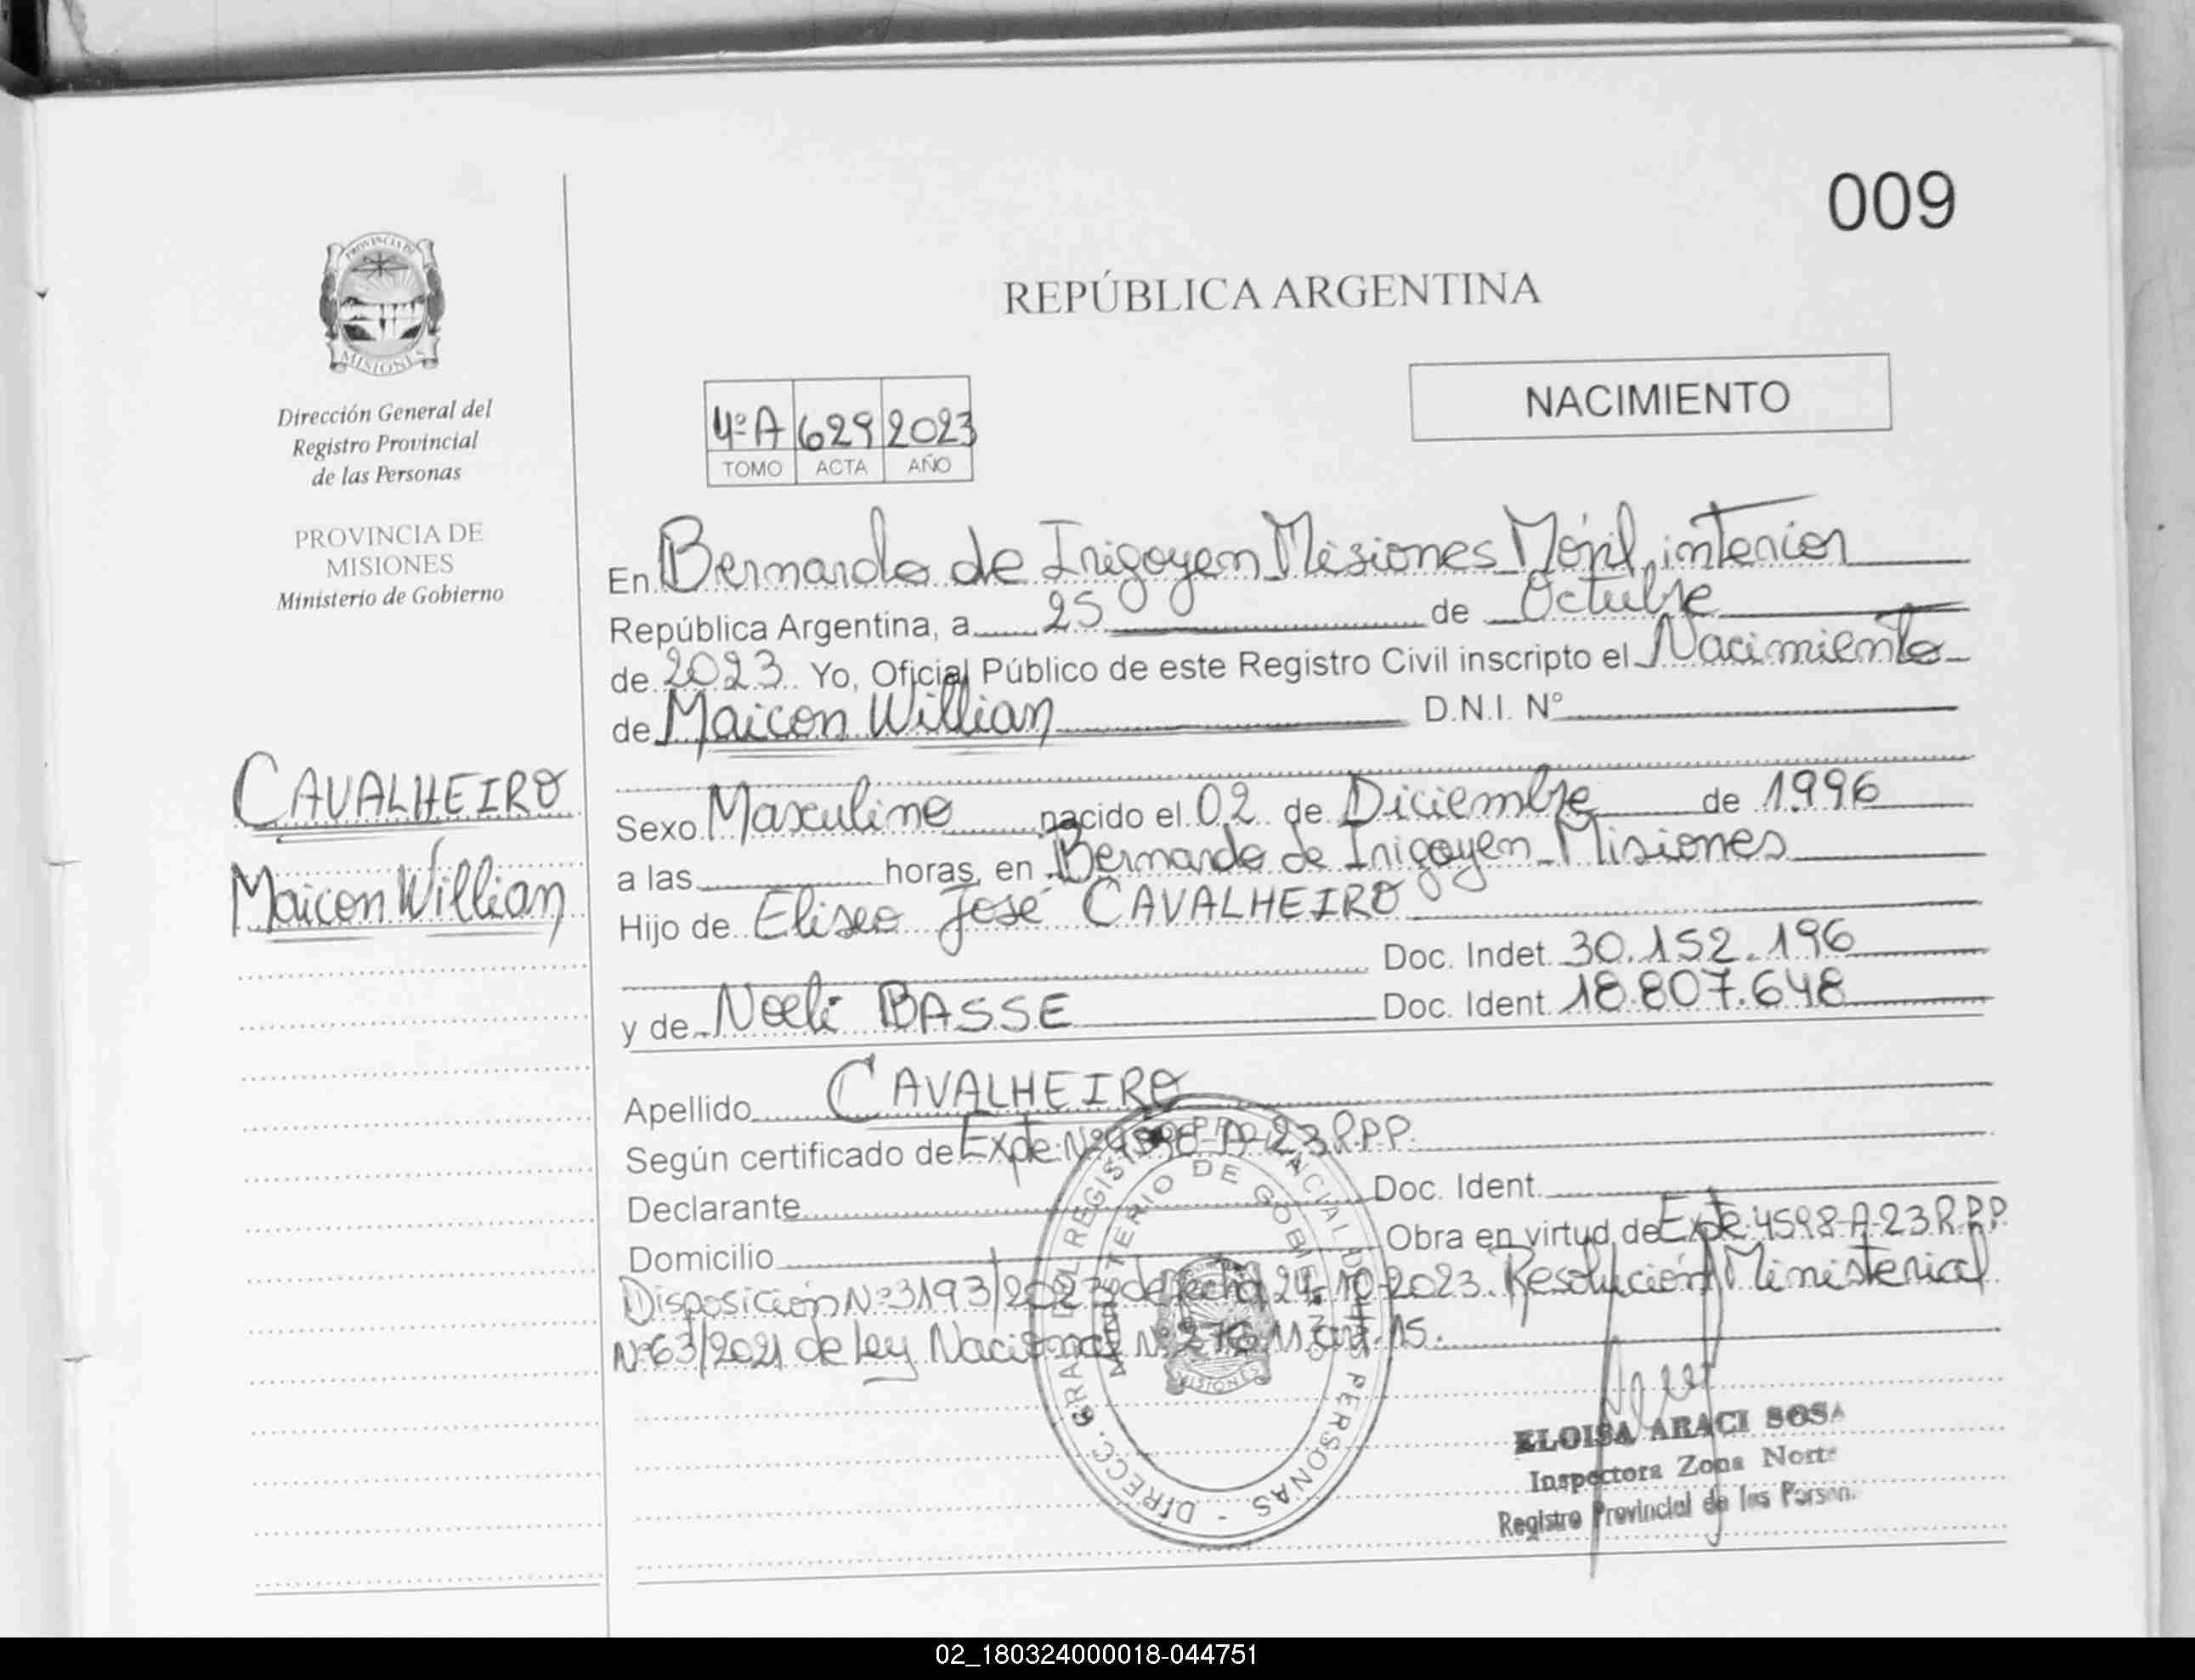 009
REPÚBLICA ARGENTINA
NACIMIENTO
PROVINCIA DE
MISIONES
Dirección General del
Registro Provincial
de las Personas
PROVINCIA DE
MISIONES
Ministerio de Gobierno
4º A 629 2023
TOMO ACTA AÑO
CAVALHEIRO
Maicon Willian
En Bernardo de Irigoyen Misiones Móvil interior
República Argentina, a 25 de Octubre
de 2023 Yo, Oficial Público de este Registro Civil inscripto el Nacimiento
de Maicon Willian D.N.I. Nº
Sexo Masculino nacido el 02 de Diciembre de 1996
a las horas, en Bernardo de Irigoyen Misiones
Hijo de Eliseo José CAVALHEIRO
Doc. Indet. 30.152.196
y de Noeli BASSE Doc. Ident. 18.807.648
Apellido CAVALHEIRO
Según certificado de Expe. Nº 4598-A-23 R.P.P.
Declarante Doc. Ident.
Domicilio Obra en virtud de Expte. 4598-A-23 R.P.P.
Disposición Nº 3193/2023 de fecha 24-10-2023. Resolución Ministerial
Nº 63/2021 de Ley Nacional Nº art. 15.
DIRECC. GRAL. DEL REGISTRO PROVINCIAL DE LAS PERSONAS -
MINISTERIO DE GOBIERNO
MISIONES
ELOISA ARACI SOSA
Inspectora Zona Norte
Registro Provincial de las Person.
02_180324000018-044751